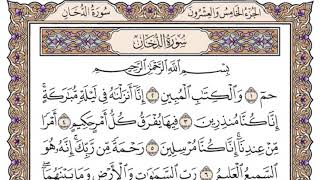 الجزء الخامس والعشرون سورة الدخان
سورة الدخان
بِسْمِ اللَّهِ الرَّحْمَٰنِ الرَّحِيمِ
حمٓ ۝١ وَالْكِتَابِ الْمُبِينِ ۝٢ إِنَّا أَنزَلْنَاهُ فِي لَيْلَةٍ مُّبَارَكَةٍ ۚ
إِنَّا كُنَّا مُنذِرِينَ ۝٣ فِيهَا يُفْرَقُ كُلُّ أَمْرٍ حَكِيمٍ ۝٤ أَمْرًا
مِّنْ عِندِنَا ۚ إِنَّا كُنَّا مُرْسِلِينَ ۝٥ رَحْمَةً مِّن رَّبِّكَ ۚ إِنَّهُ هُوَ
السَّمِيعُ الْعَلِيمُ ۝٦ رَبِّ السَّمَاوَاتِ وَالْأَرْضِ وَمَا بَيْنَهُمَا ۖ